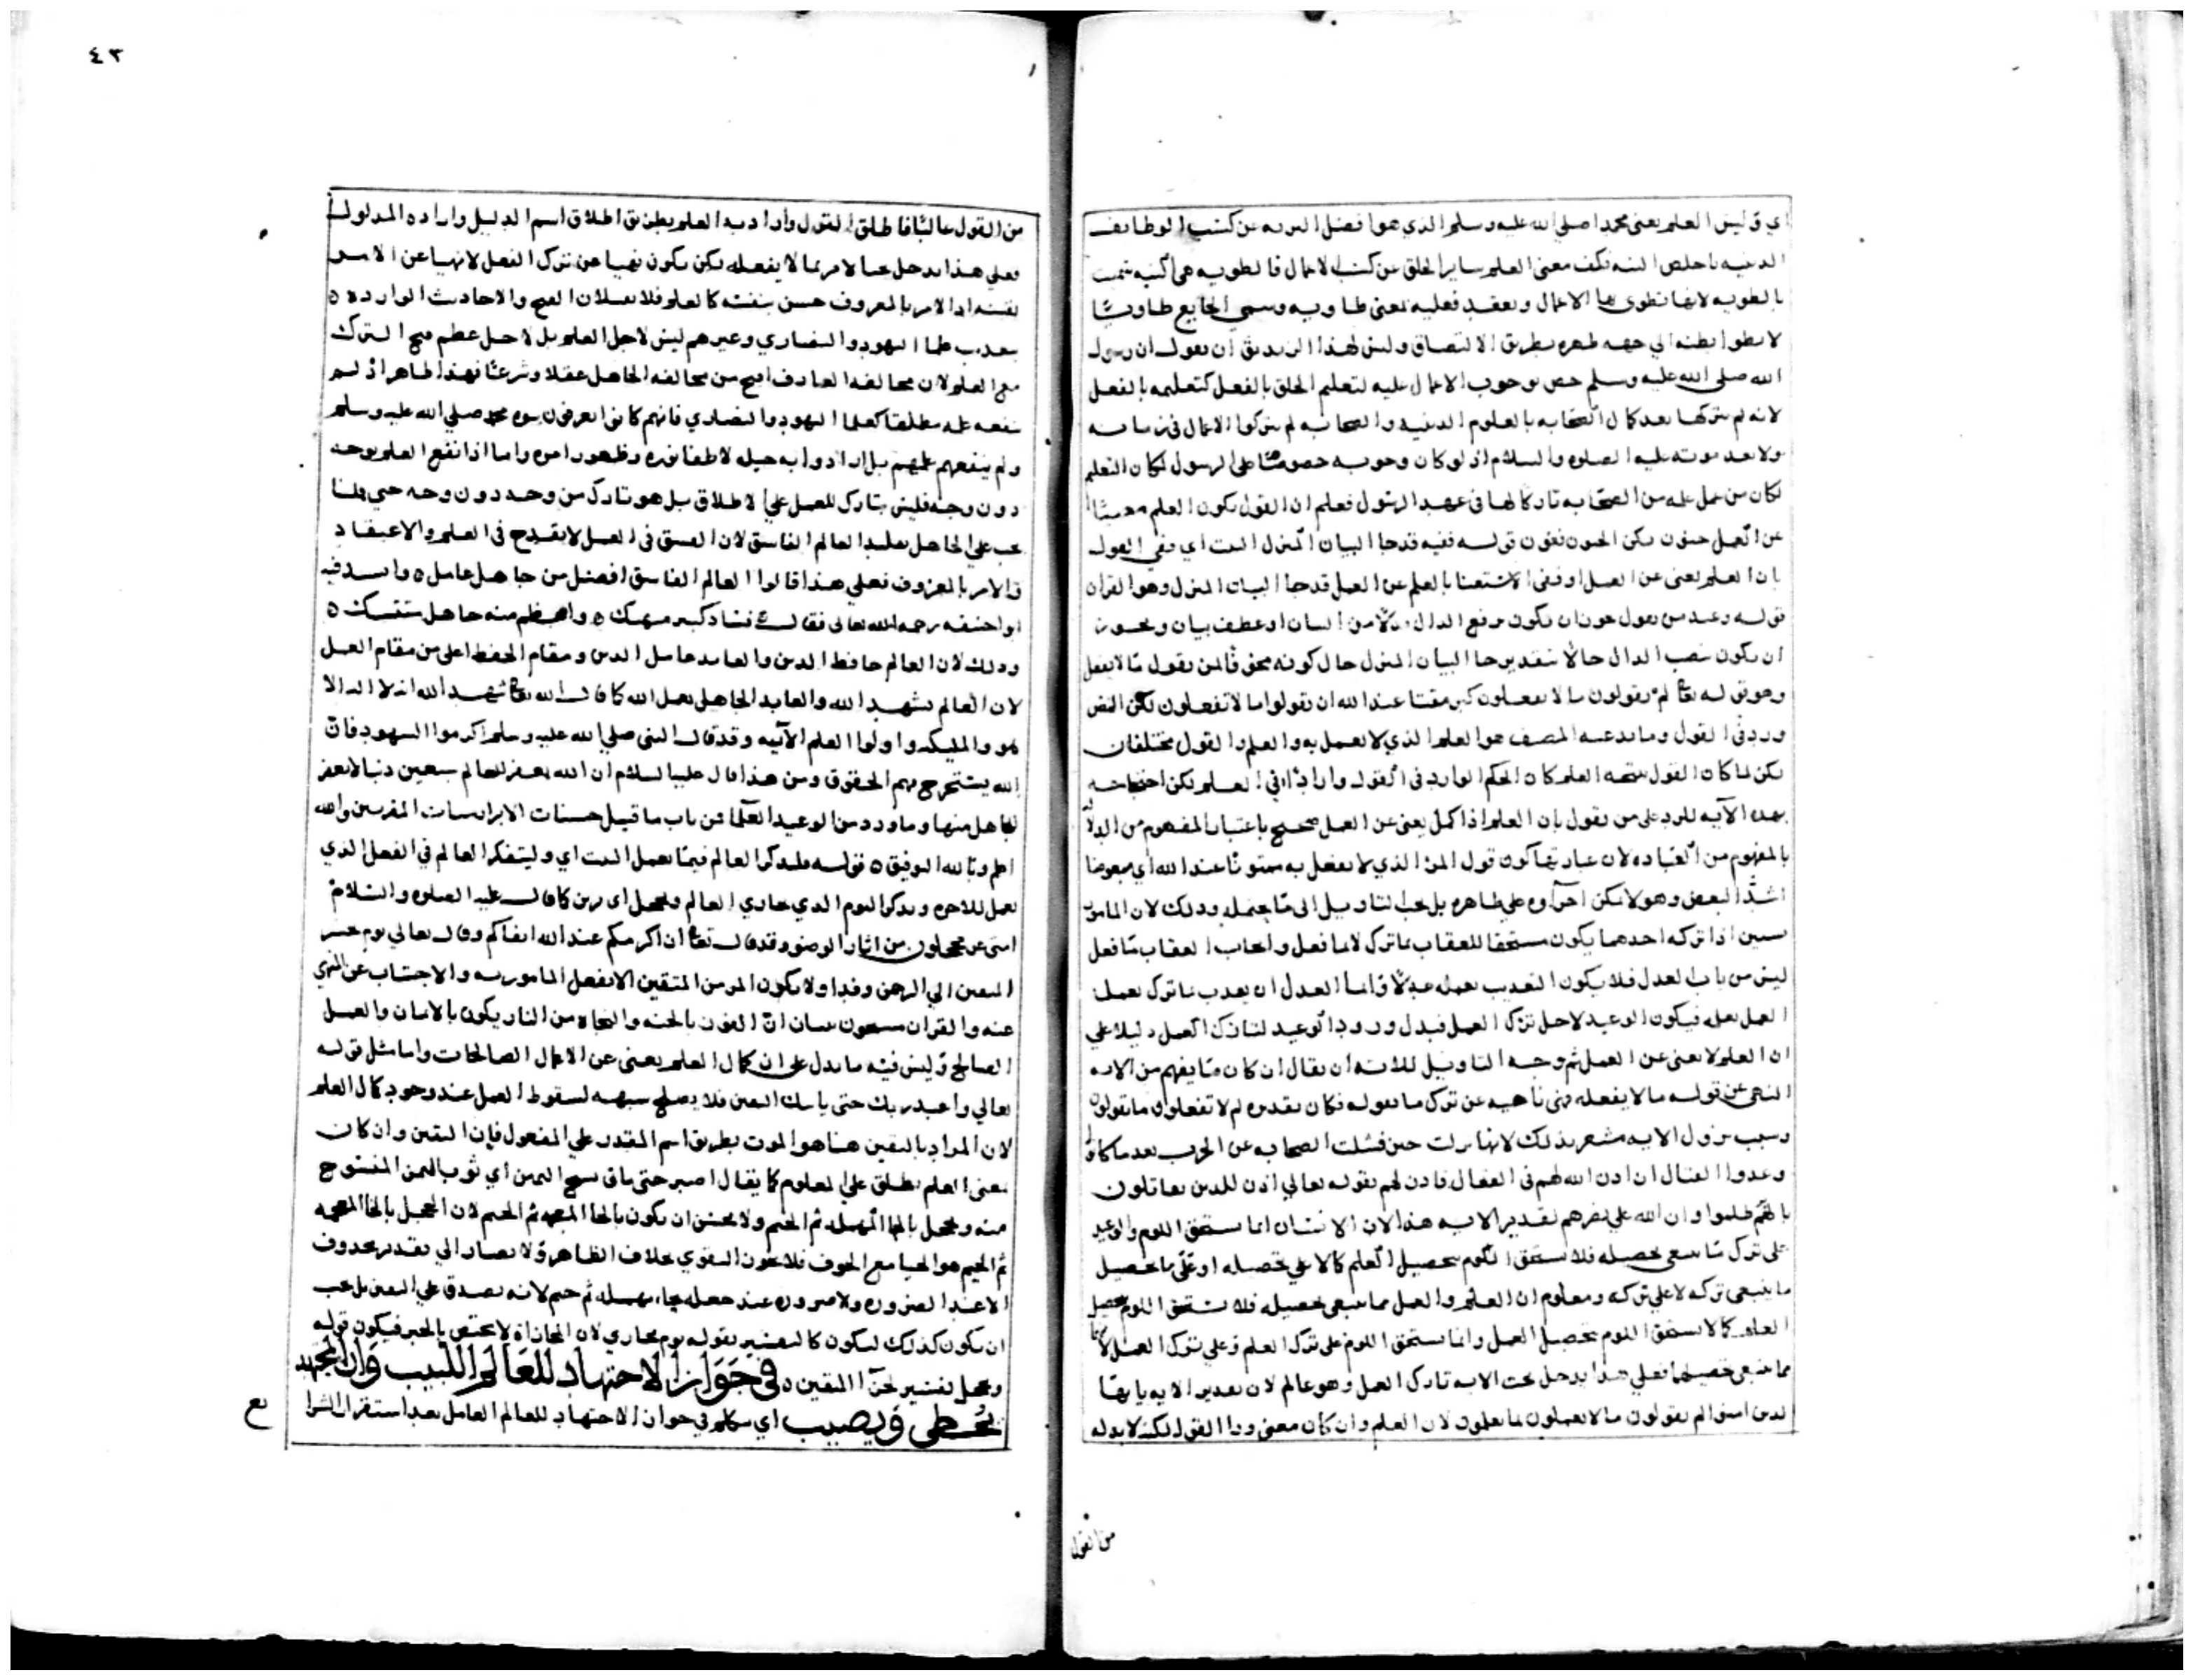 اي وليس العلم يعني محمدا صلي الله عليه وسلم الذي هو افضل البريه عن كسب الوظايف
الدنيه باخلص النيه فكيف يغني العلم ساير الخلق عن كسب الاعمال فالطويه هي النيه سميت
بالطويه لانها تطوي بها الاعمال وتعقد فعليه بمعني طاويه وسمي الجايع طاويا
لانطوا بطنه الي جهه ظهره بطريق الالتصاق وليس لهذا الزنديق ان يقول ان رسول
الله صلي الله عليه وسلم خص بوجوب الاعمال عليه لتعليم الخلق بالفعل كتعليمه بالفعل
لانه لم يتركها بعد كمال الصحابه بالعلوم الدينيه والصحابه لم يتركوا الاعمال في زمانه
ولا بعد موته عليه الصلوه والسلام اذ لو كان وجوبه خصوصا على الرسول لمكان التعلم
لكان من عمل علمه من الصحابه تاركا لها في عهد الرسول فعلم ان القول بكون العلم مغنيا
عن العمل جنون لكن الجنون فنون قوله ففيه قد جا البيان المنزل البيت اي وفي القول
بان العلم يغني عن العمل او في الاستغنا بالعلم عن العمل قد جا البيان المنزل وهو القران
قوله وعيد من يقول يجوز ان يكون برفع الدال بدلا من البيان او عطف بيان ويجوز
ان يكون بنصب الدال حالا بتقدير جا البيان المنزل حال كونه مخوفا لمن يقول ما لا يفعل
وهو قوله تعا لم تقولون ما لا تفعلون كبر مقتا عند الله ان تقولوا ما لا تفعلون لكن النص
ورد في القول وما يدعيه المصنف هو العلم الذي لا يعمل به والعلم والقول مختلفان
لكن لما كان القول نتيجه العلم كان الحكم الوارد في القول واردا في العلم لكن احتجاجه
بهذه الآيه للرد على من يقول بان العلم اذا كمل يغني عن العمل صحيح باعتبار المفهوم من الدلا
بالمفهوم من العباده لان عبارتها كون قول المرء الذي لا يفعل به ممقوتا عند الله اي مبغوضا
اشد البغض وهو لا يمكن اجراوه علي ظاهره بل يجب التاويل الى ما يحتمله وذلك لان المامور
بشيين اذا ترك احدهما يكون مستحقا للعقاب بما ترك لا بما فعل وايجاب العقاب بما فعل
ليس من باب العدل فلا يكون التعذيب بعمله عدلا وانما العدل ان يعذب بما ترك بعمله
العمل بعلمه فيكون الوعيد لاجل ترك العمل فيدل ورود الوعيد لتارك العمل دليلا علي
ان العلم لا يغني عن العمل ثم وجه التاويل للايه ان يقال ان كان ما يفهم من الايه
النهي عن قوله ما لا يفعله فهي ناهيه عن ترك ما يقوله فكان تقديره لم لا تفعلون ما تقولون
وسبب نزول الايه مشعر بذلك لانها نزلت حين فشلت الصحابه عن الحرب بعد ما كانوا
وعدوا القتال ان اذن الله لهم في القتال فاذن لهم بقوله تعالي اذن للذين يقاتلون
بانهم ظلموا وان الله علي نصرهم لقدير الايه هذا لان الانسان انما يستحق اللوم والوعيد
على ترك ما ينبغي تحصيله فلا يستحق اللوم بتحصيل العلم كما لا علي تحصيله او علي ما تحصيل
ما ينبغي تركه لا علي تركه ومعلوم ان العلم والعمل مما ينبغي تحصيله فلا يستحق اللوم بتحصيل
العلم كما لا يستحق اللوم بتحصيل العمل وانما يستحق اللوم على ترك العلم وعلي ترك العمل لانهما
مما ينبغي تحصيلهما فعلي هذا يدخل تحت الايه تارك العمل وهو عالم لان تقدير الايه يا ايها
الذين امنوا لم تقولون ما لا تعملون بما تعلمون لان العلم وان كان معني ورا القول لكنه لا بد له
من القول
٤٣
من القول غالبا فاطلق القول واراد به العلم بطريق اطلاق اسم الدليل واراده المدلول
فعلي هذا يدخل الامر بما لا يفعله لكن يكون نهيا عن ترك الفعل لا نهيا عن الامر
نفسه اذ الامر بالمعروف حسن بنفسه كالعلم فلا يعلان القبح والاحاديث الوارده ه
بتعذيب علما اليهود والنصاري وغيرهم ليس لاجل العلم بل لاجل عظم قبح الترك
مع العلم لان مخالفه العارف اقبح من مخالفه الجاهل عقلا وشرعا فهذا ظاهر اذ لم
ينفعه علمه مطلقا كعلما اليهود والنصاري فانهم كانوا يعرفون نبوه محمد صلي الله عليه وسلم
ولم ينفعهم علمهم بل ارادوا به حيله لاطفا نوره وظهور امره واما اذا نفع العلم بوجه
دون وجه فليس بتارك للعمل علي الاطلاق بل هو تارك من وجه دون وجه حتي قلنا
يجب علي الجاهل تقليد العالم الفاسق لان الفسق في العمل لا يقدح في العلم والاعتقاد
والامر بالمعروف فعلي هذا قالوا العالم الفاسق افضل من جاهل عامل ه وانشد فيه
ابو حنيفه رحمه الله تعالى فقال فساد كبير مهتك ه واعظم منه جاهل متنسك ه
وذلك لان العالم حافظ الدين والعابد عامل الدين ومقام الحفظ اعلى من مقام العمل
لان العالم يشهد الله والعابد الجاهل يعمل الله كما قال الله تعا شهد الله انه لا اله الا
هو والمليكه واولوا العلم الآيه وقد قال النبي صلي الله عليه وسلم اكرموا الشهود فان
الله يستخرج بهم الحقوق ومن هذا قال عليه السلام ان الله يغفر للعالم سبعين ذنبا لا يغفر
لجاهل منها وما ورد من الوعيد العلما من باب ما قيل حسنات الابرار سيات المقربين والله
اعلم وبالله التوفيق ه قوله فليذكر العالم فيما يعمل البيت اي وليتفكر العالم في الفعل الذي
يعمل للاخره ويذكر اليوم الذي يجازي العالم ومحجل اي زين كما قال عليه الصلوه والسلام
امتي غر محجلون من اثار الوضو وقد قال تعا ان اكرمكم عند الله اتقاكم وقال تعالي يوم نحشر
المتقين الي الرحمن وفدا ولا يكون المرء من المتقين الا بفعل المامور به والاجتناب عن المنهي
عنه والقران مشحون ببيان ان الفوز بالجنه والنجاه من النار يكون بالايمان والعمل
الصالح وليس فيه ما يدل علي ان كمال العلم يغني عن الاعمال الصالحات واما مثل قوله
تعالي واعبد ربك حتى ياتيك اليقين فلا يصلح شبهه لسقوط العمل عند وجود كمال العلم
لان المراد باليقين هنا هو الموت بطريق اسم المقدر علي المفعول فان اليقين وان كان
بمعني العلم يطلق علي المعلوم كما يقال اصبر حتى ما في نسج اليمن اي ثوب اليمن المنسوج
منه ومحجل بالحا المهمله ثم الجيم ولا يحسن ان يكون بالخا المعجمه ثم الجيم لان الخجل بالخا المعجمه
ثم الجيم هو الحيا مع الخوف فلا يكون التقوي بخلاف الظاهر ولا يصار الي تقدير محذوف
الا عند الضروره ولا ضروره عند جعله بحا مهمله ثم جيم لانه يصدق علي اليقين بل يجب
ان يكون كذلك ليكون كالتفسير لقوله يوم يجازي لان المجازاه لا يختص بالخير فيكون قوله
ومحجل تفسير لجزآ المتقين ه في جَوَازِ الاجتهاد للعَالِم اللبيب وَان المجتهد
يُخطي وَيصيب اي نتكلم في جواز الاجتهاد للعالم العامل بعد استقرار الشرا